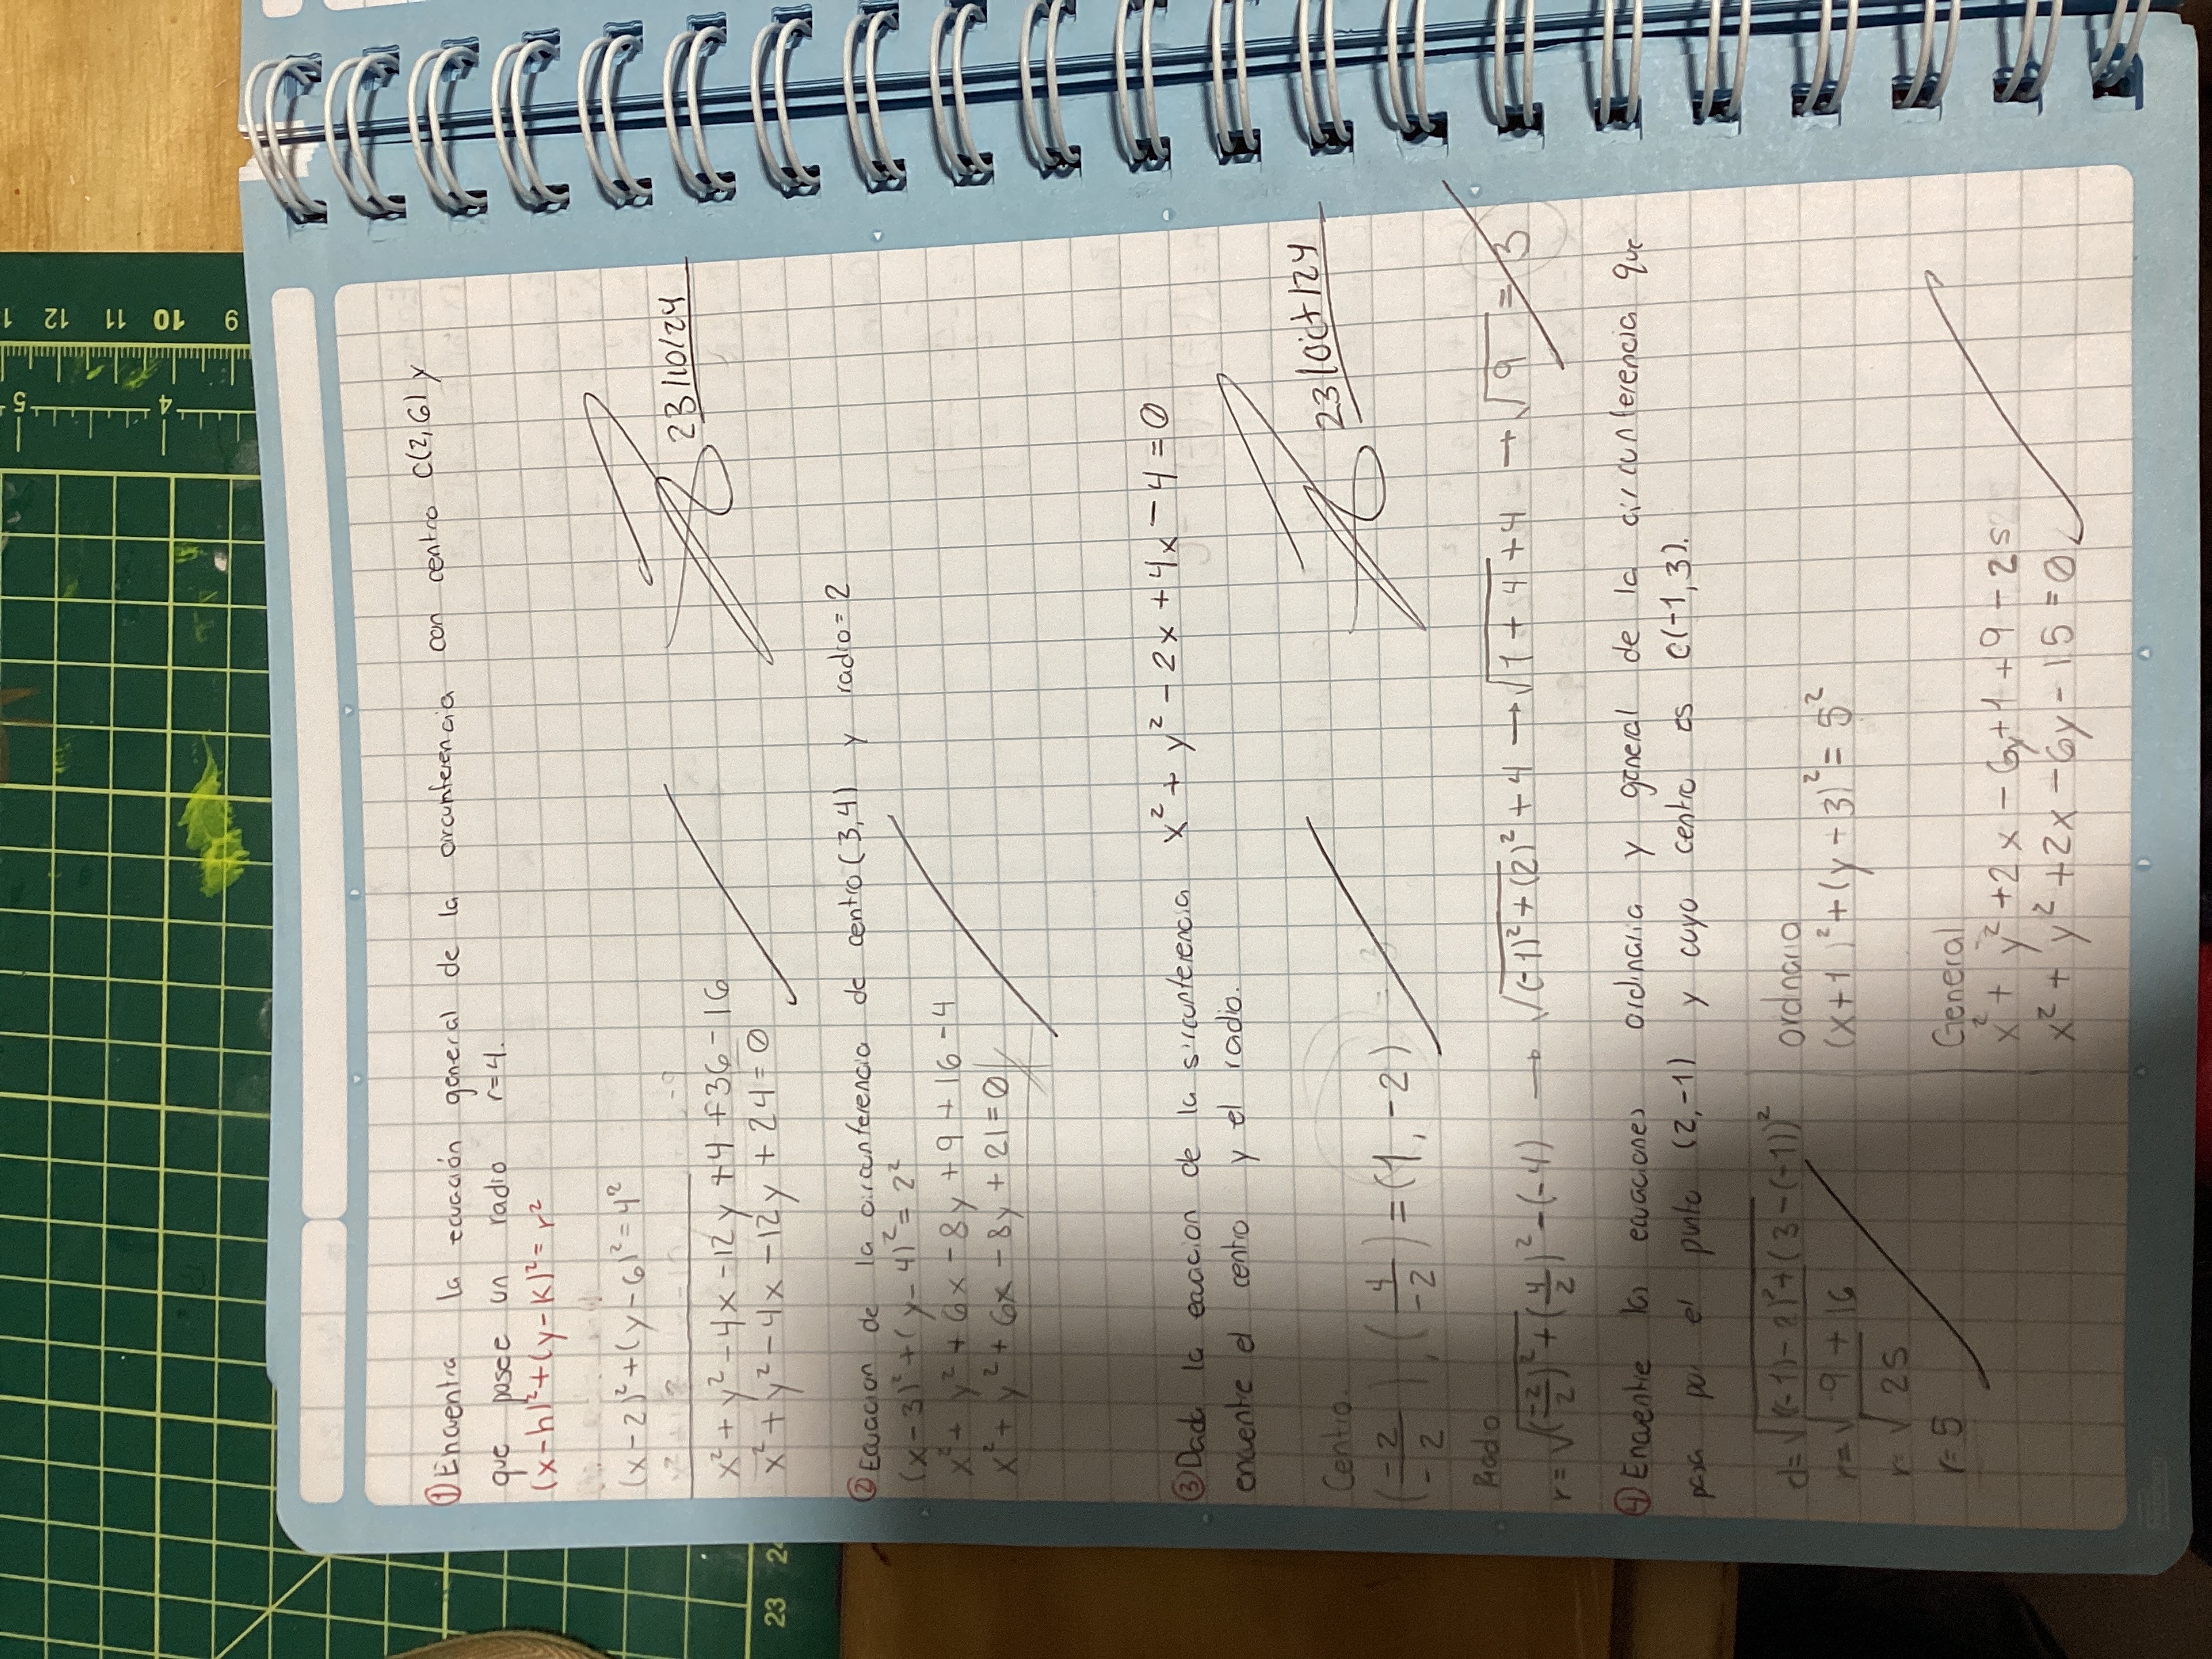 ① Encuentra la ecuación general de la circunferencia con centro C(2,6) y
que posee un radio r=4.
(x-h)²+(y-k)²=r²
(x-2)²+(y-6)²=4²
x²+y²-4x-12y+4+36-16
x²+y²-4x-12y+24=0
23/10/24
② Ecuacion de la circunferencia de centro(3,4) y radio=2
(x-3)²+(y-4)²=2²
x²+y²+6x-8y+9+16-4
x²+y²+6x-8y+21=0
③ Dada la ecuacion de la sircunferencia x²+y²-2x+4x-4=0
encuentre el centro y el radio.
Centro.
(-2/-2), (4/-2)=(1,-2)
23/oct/24
Radio
r=√(-2/2)²+(4/2)²-(-4) → √(-1)²+(2)²+4 → √1+4+4 → √9 = 3
④ Encuentre las ecuaciones ordinaria y general de la circunferencia que
pasa por el punto (2,-1) y cuyo centro es C(-1,3).
d=√((-1)-2)²+(3-(-1))²
r=√9+16
r=√25
r=5
ordinario
(x+1)²+(y-3)²=5²
General
x²+y²+2x-6y+1+9-25
x²+y²+2x-6y-15=0
9 10 11 12 1
4 5
23 24